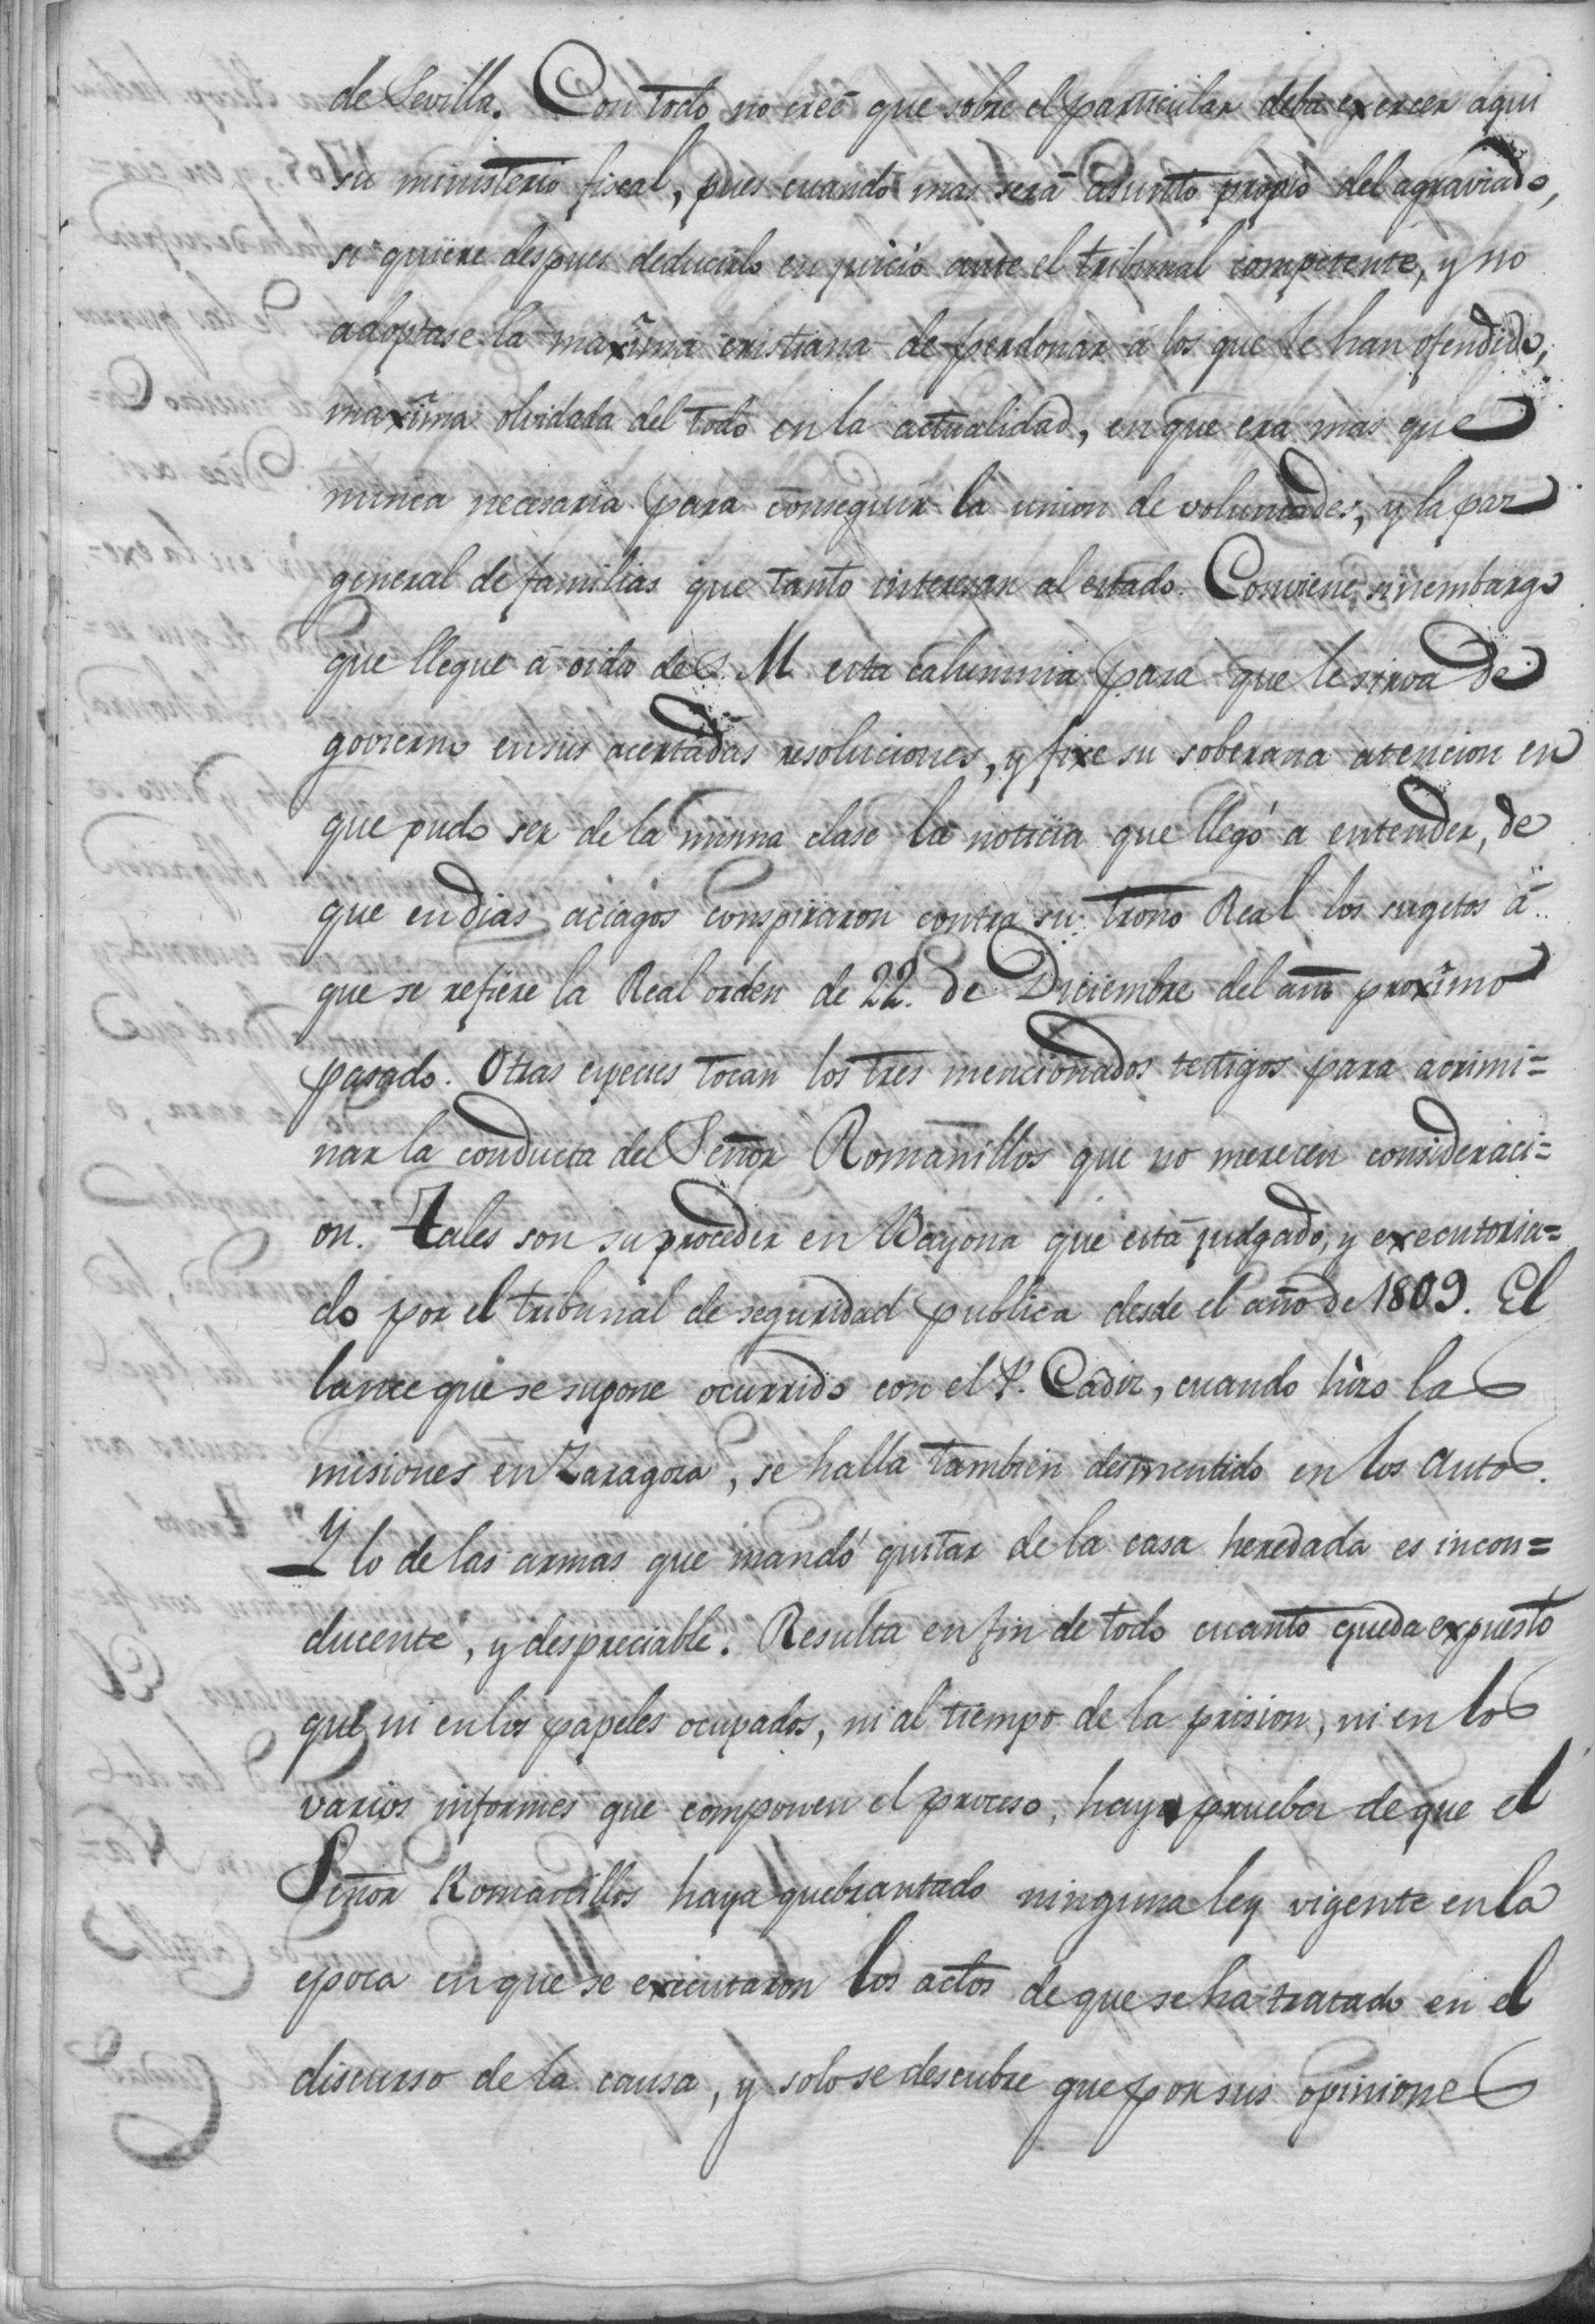 de Sevilla. Con todo no creé que sobre el particular deba exercer aqui
su ministerio fiscal, pues cuando mas será asunto propio del agraviado,
si quiere despues deducirlo en juicio ante el tribunal competente, y no
adoptase la maxîma cristiana de perdonar á los que le han ofendido,
maxîma olvidada del todo en la actualidad, en que era mas que
nunca necesaria para conseguir la union de voluntades, y la paz
general de familias que tanto interesan al estado. Conviene sinembargo
que llegue á oido de S. M. esta calumnia para que le sirva de
govierno en sus acertadas resoluciones, y fixe su soberana atencion en
que pudo ser de la misma clase la noticia que llegó a entender, de
que en dias aciagos conspiraron contra su trono Real los sugetos á
que se refiere la Real orden de 22. de Diciembre del año proxîmo
pasado. Otras especies tocan los tres mencionados testigos para acrimi=
nar la conducta del Señor Romanillos que no merecen consideraci=
on. Tales son su proceder en Bayona que está juzgado, y executoria=
do por el tribunal de seguridad publica desde el año de 1809. El
lance que se supone ocurrido con el P. Cadiz, cuando hizo las
misiones en Zaragoza, se halla tambien desmentido en los autos.
Y lo de las armas que mandó quitar de la casa heredada es incon=
ducente, y despreciable. Resulta en fin de todo cuanto queda expuesto
que ni en los papeles ocupados, ni al tiempo de la prision, ni en los
varios informes que componen el proceso, haya prueba de que el
Señor Romanillos haya quebrantado ninguna ley vigente en la
epoca en que se executaron los actos de que se ha tratado en el
discurso de la causa, y solo se descubre que por sus opiniones